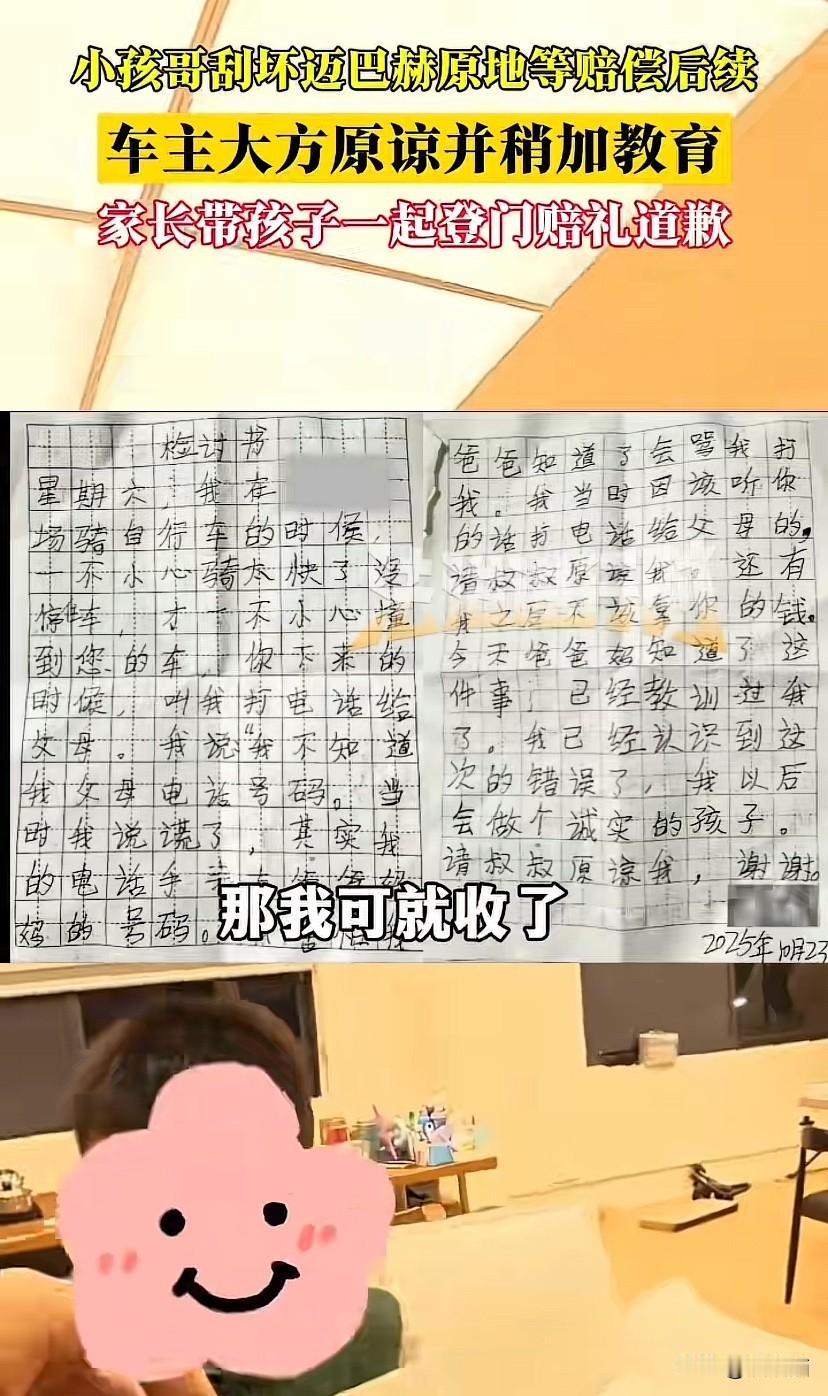 小孩哥刮坏迈巴赫原地等赔偿后续
车主大方原谅并稍加教育
家长带孩子一起登门赔礼道歉
检讨书
星期六，我在
场骑自行车的时候，
一不小心骑太快了没
停车，才一不小心撞
到您的车，你下来的
时候，叫我打电话给
父母。我说“我不知道
我父母电话号码。当
时我说谎了，其实我
的电话手
妈的号码。
爸爸知道了会骂我打
我。我当时因该听你
的话打电话给父母的。
请叔叔原谅我。还有
我之后不该拿你的钱。
今天爸爸妈知道了这
件事，已经教训过我
了。我已经认识到这
次的错误了，我以后
会做个诚实的孩子。
请叔叔原谅我，谢谢。
2025年10月23
那我可就收了